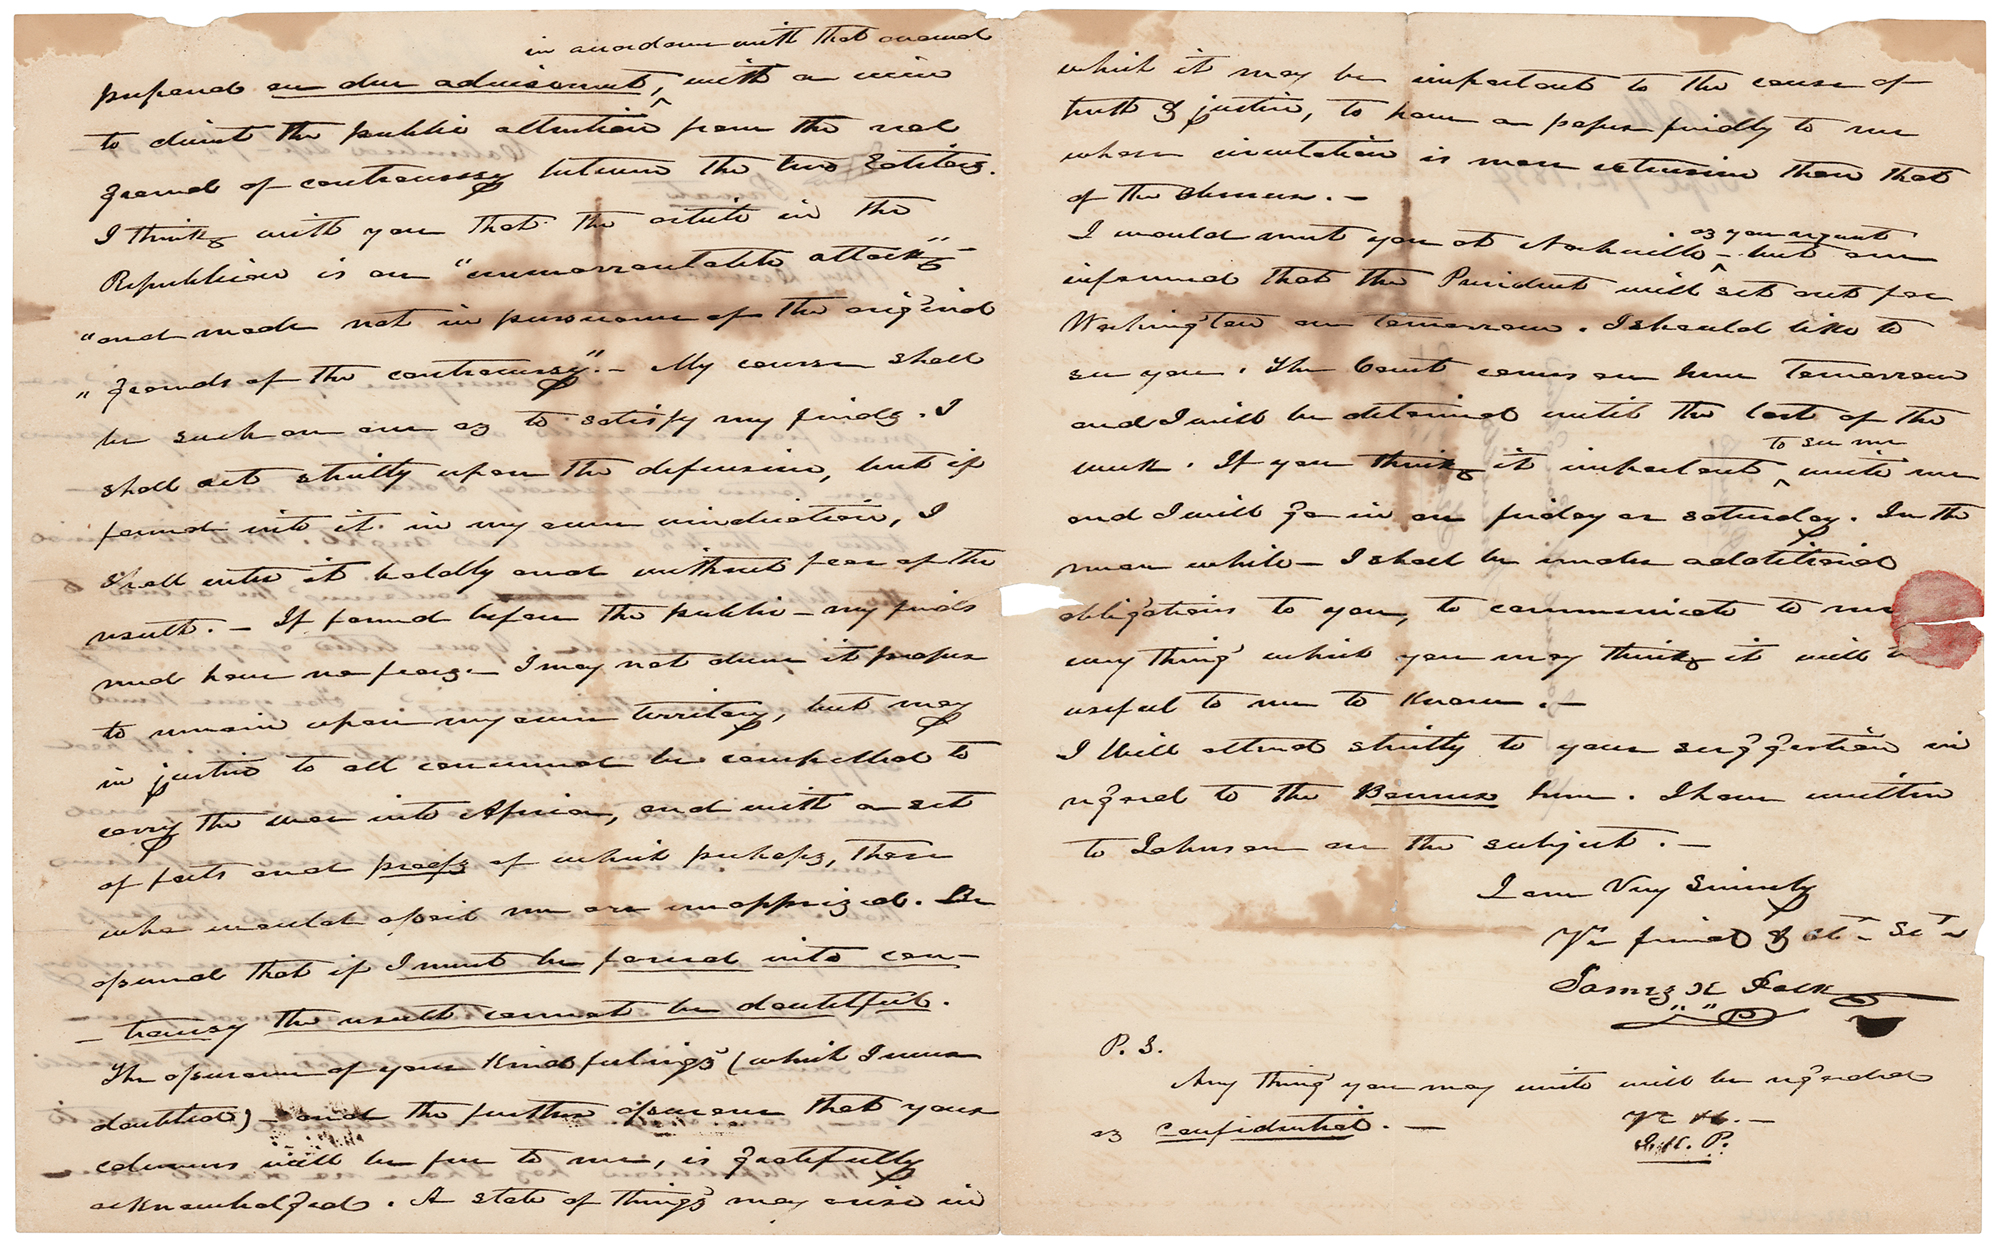 in accordance with that avowed
prepared on due advisement, ^ with a view
to divert the public attention from the real
ground of controversy between the two Editors.
I think with you that the article in the
Republican is an "unwarrantable attack" -
"and made not in pursuance of the original
"grounds of the controversy". - My course shall
be such an one as to satisfy my friends. I
shall act strictly upon the defensive, but if
forced into it in my own vindication, I
shall enter it boldly and without fear of the
result. - If forced before the public - my friends
need have no fears - I may not deem it proper
to remain upon my own territory, but may
in justice to all concerned be compelled to
carry the war into Africa, and with a set
of facts and proofs of which perhaps, those
who would assail me are unapprized. Be
assured that if I must be forced into con-
- troversy the result cannot be doubtful.
The assurance of your kind feelings (which I never
doubted) - and the further assurance that your
columns will be free to me, is gratefully
acknowledged. A state of things may arise in
which it may be important to the cause of
truth & justice, to have a paper friendly to me
whose circulation is more extensive than that
of the Observer. -
as you request
I would meet you at Nashville - ^ but am
informed that the President will set out for
Washington on tomorrow. I should like to
see you. The Court comes on here tomorrow
and I will be detained until the last of the
to see me
week. If you think it important ^ write me
and I will go in on friday or saturday. In the
mean while - I shall be under additional
obligations to you, to communicate to me
any thing which you may think it will
useful to me to know. -
I will attend strictly to your suggestion in
regard to the here. I have written
to Johnson on the subject. -
I am Very Sincerely
Yr friend & obt. Sevt
James K Polk
P. S.
Any thing you may write will be regarded
as confidential. -
Yrs &c. -
J. K. P.